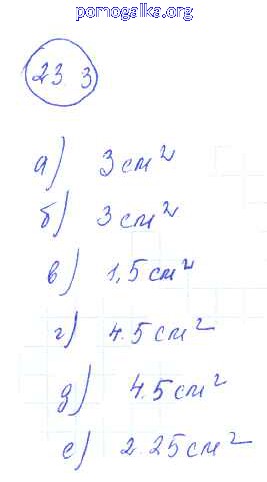 pomogalka.org
23 3
а) 3 см²
б) 3 см²
в) 1,5 см²
г) 4.5 см²
д) 4.5 см²
е) 2.25 см²